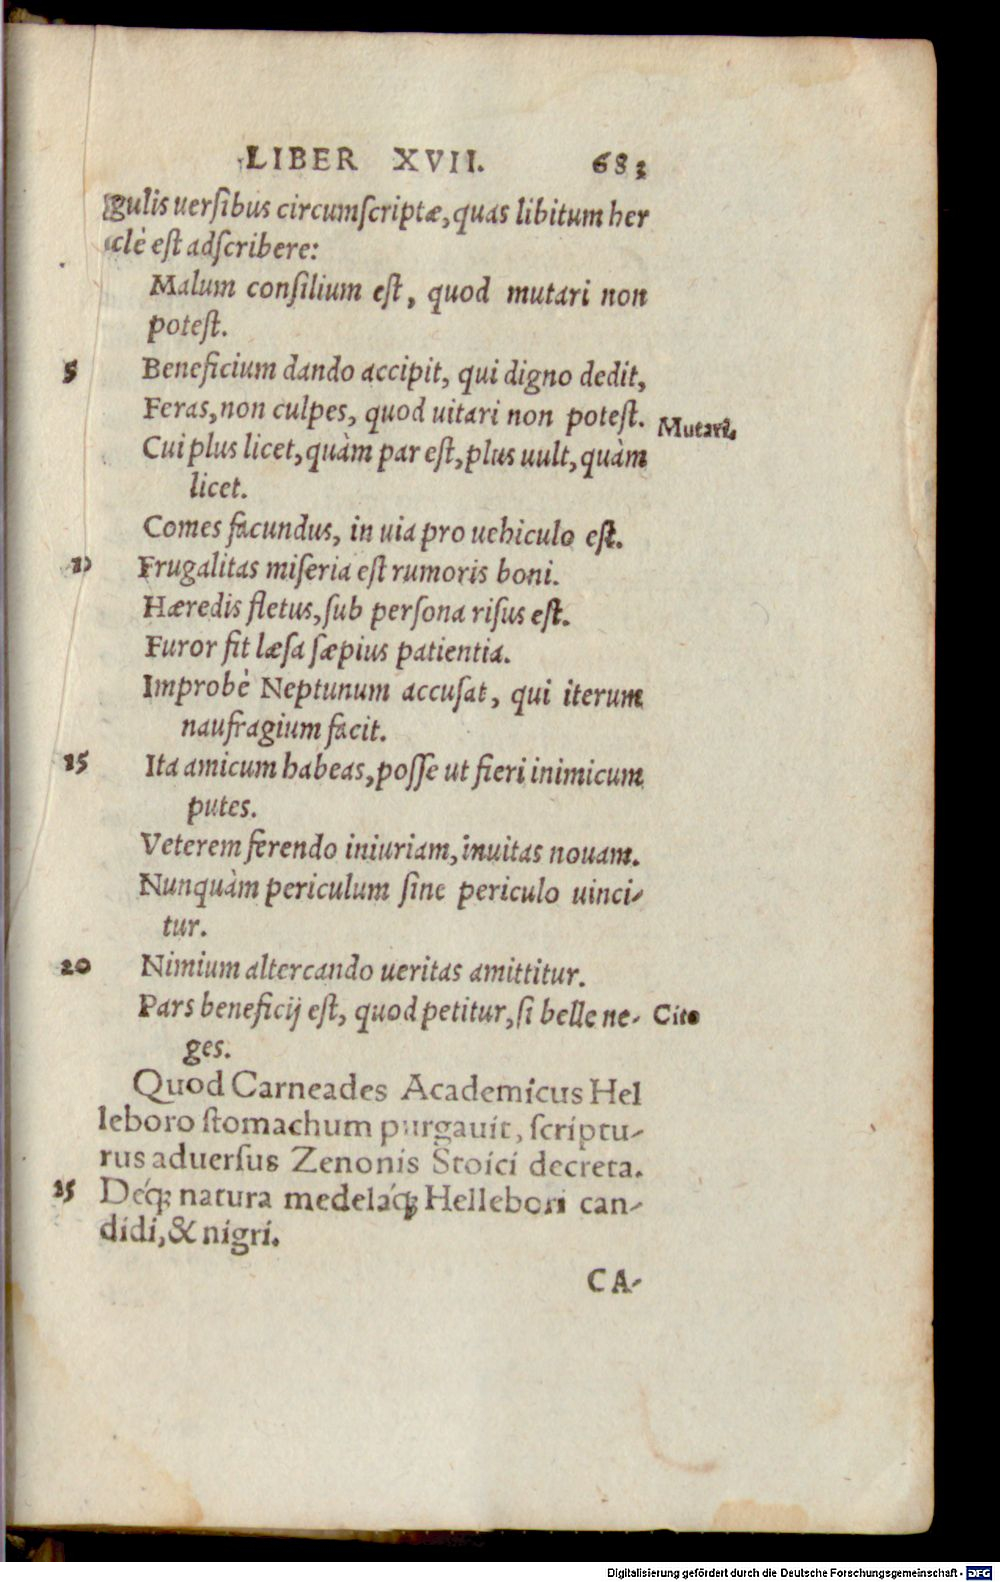 LIBER XVII. 683
gulis uersibus circumscriptæ, quas libitum her
clè est adscribere:
Malum consilium est, quod mutari non
potest.
5 Beneficium dando accipit, qui digno dedit,
Feras, non culpes, quod uitari non potest. Mutari.
Cui plus licet, quàm par est, plus uult, quàm
licet.
Comes facundus, in uia pro uehiculo est.
10 Frugalitas miseria est rumoris boni.
Hæredis fletus, sub persona risus est.
Furor fit læsa sæpius patientia.
Improbè Neptunum accusat, qui iterum
naufragium facit.
15 Ita amicum habeas, posse ut fieri inimicum
putes.
Veterem ferendo iniuriam, inuitas nouam.
Nunquàm periculum sine periculo uinci-
tur.
20 Nimium altercando ueritas amittitur.
Pars beneficij est, quod petitur, si belle ne- Cito
ges.
Quod Carneades Academicus Hel
leboro stomachum purgauit, scriptu-
rus aduersus Zenonis Stoici decreta.
25 Déq; natura medeláq; Hellebori can-
didi, & nigri.
CA-
Digitalisierung gefördert durch die Deutsche Forschungsgemeinschaft - DFG